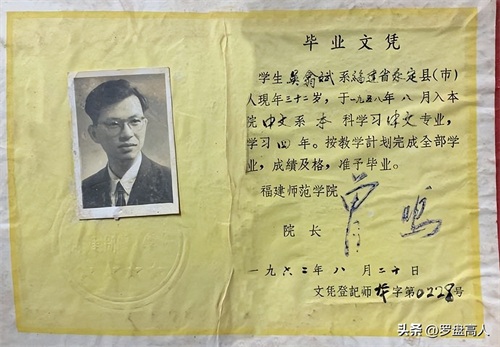 毕业文凭
学生吴翁斌系福建省永定县(市)
人现年三十二岁，于一九五八年八月入本
院中文系本科学习中文专业，
学习四年。按教学計划完成全部学
业，成績及格，准予毕业。
福建师范学院
院长
一九六二年八月二十日
文凭登記师本字第0228号
头条@罗盘高人